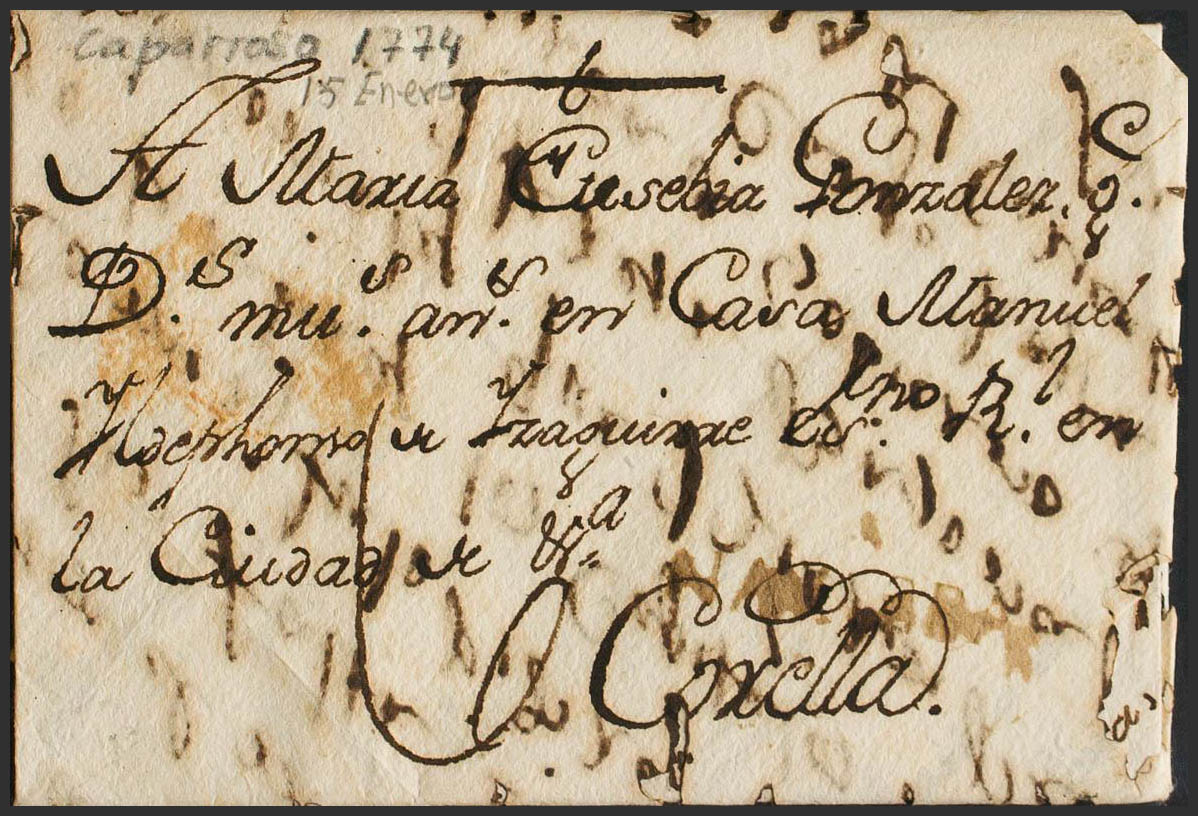 Caparroso 1774
15 Enero
A Maria Eusebia Gonzalez. q.
D.s mu.s an.s en Casa Manuel
Yldephonso de Yzaguirre Es.no R.l en
la Ciudad de
Corella.